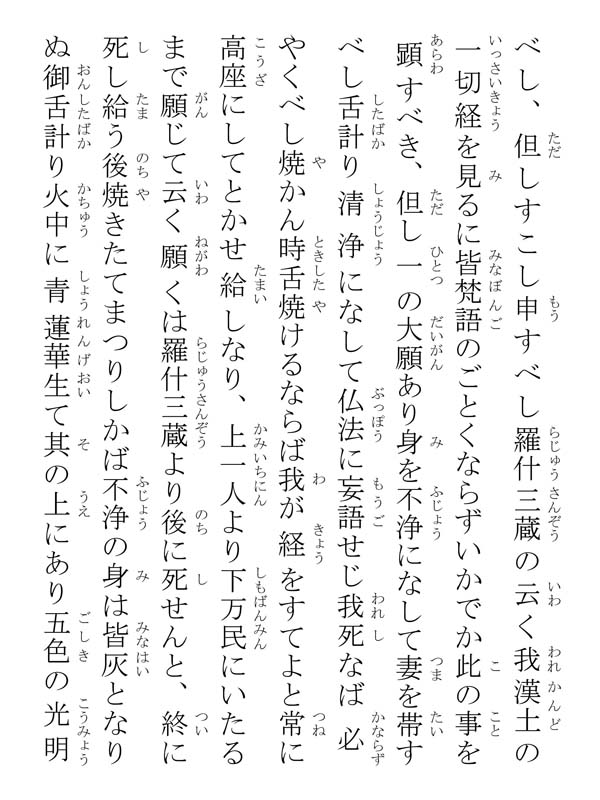 べし、但しすこし申すべし羅什三蔵の云く我漢土の
一切経を見るに皆梵語のごとくならずいかでか此の事を
顕すべき、但し一の大願あり身を不浄になして妻を帯す
べし舌計り清浄になして仏法に妄語せじ我死なば必
やくべし焼かん時舌焼けるならば我が経をすてよと常に
高座にしてとかせ給しなり、上一人より下万民にいたる
まで願じて云く願くは羅什三蔵より後に死せんと、終に
死し給う後焼きたてまつりしかば不浄の身は皆灰となり
ぬ御舌計り火中に青蓮華生て其の上にあり五色の光明